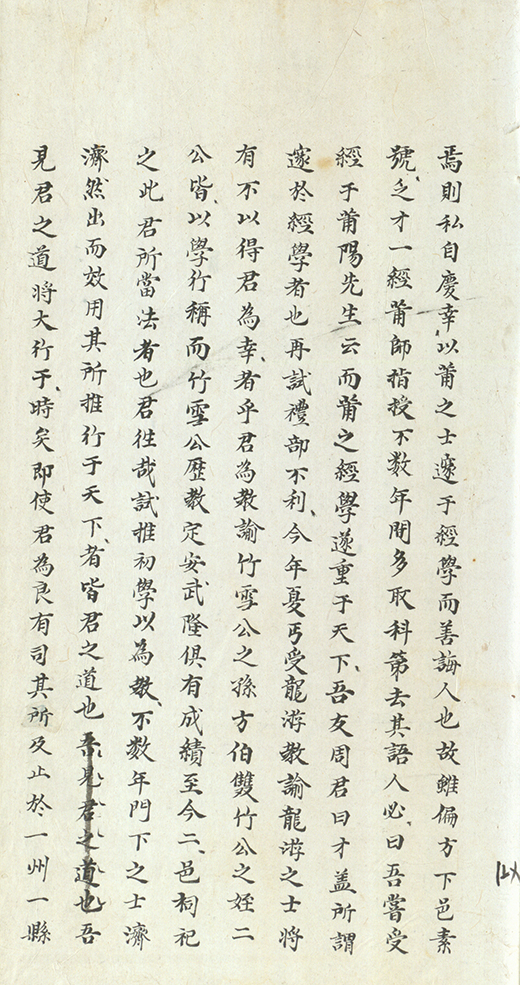 焉則私自慶幸以莆之士邃于經學而善誨人也故雖偏方下邑素
號乏才一經莆師指授不数年間多取科第去其語人必曰吾嘗受
經于莆陽先生云而莆之經學遂重于天下吾友周君曰才盖所謂
邃於經學者也再試禮部不利今年夏丐受龍游教諭龍游之士將
有不以得君為幸者乎君為教諭竹雪公之孫方伯雙竹公之姪二
公皆以學行稱而竹雪公歷教定安武隆俱有成績至今二邑祠祀
之此君所當法者也君徃哉試推初學以為教不数年門下之士濟
濟然出而效用其所推行于天下者皆君之道也吾見君之道也吾
見君之道將大行于時矣即使君為良有司其所及止於一州一縣